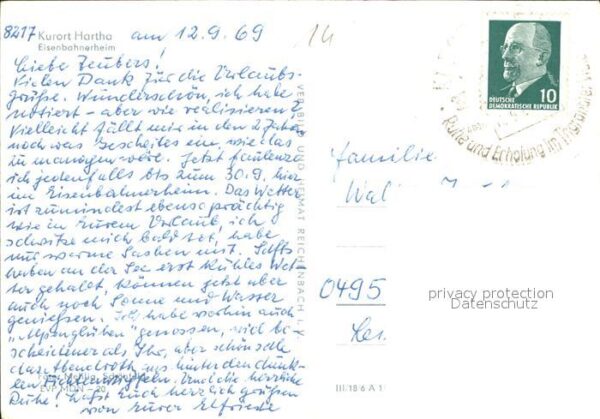 8217 Kurort Hartha am 12.9.69
Eisenbahnerheim
14
Liebe Teubers!
Vielen Dank für die Urlaubs-
grüße. Wunderschön, ich habe
notiert – aber wie realisieren?
Vielleicht fällt mir in den 2 Jahren
noch was Gescheites ein, wie das
zu managen wäre. Jetzt faulenze
ich jedenfalls bis zum 30.9. hier
im Eisenbahnerheim. Das Wetter
ist zumindest ebenso prächtig
wie in Eurem Urlaub, ich
schwitze mich bald tot, habe
nur warme Sachen mit.
haben an der See erst kühles Wet-
ter gehabt, können jetzt aber
auch noch Sonne und Wasser
genießen. Ich habe vorhin auch
„Alpenglühen" genossen, viel be-
scheidener als Ihr, aber schön
das Abendrot hinter den dunk-
len Fichtenwipfeln. Und die herrliche
Ruhe! Laßt Euch herzlich grüßen
von Eurer Elfriede
VERLAG BILD UND HEIMAT REICHENBACH I. V.
DEUTSCHE
DEMOKRATISCHE REPUBLIK
10
Ruhe und Erholung im Tharandter
Familie
0495
privacy protection
Datenschutz
III/18 6 A 1